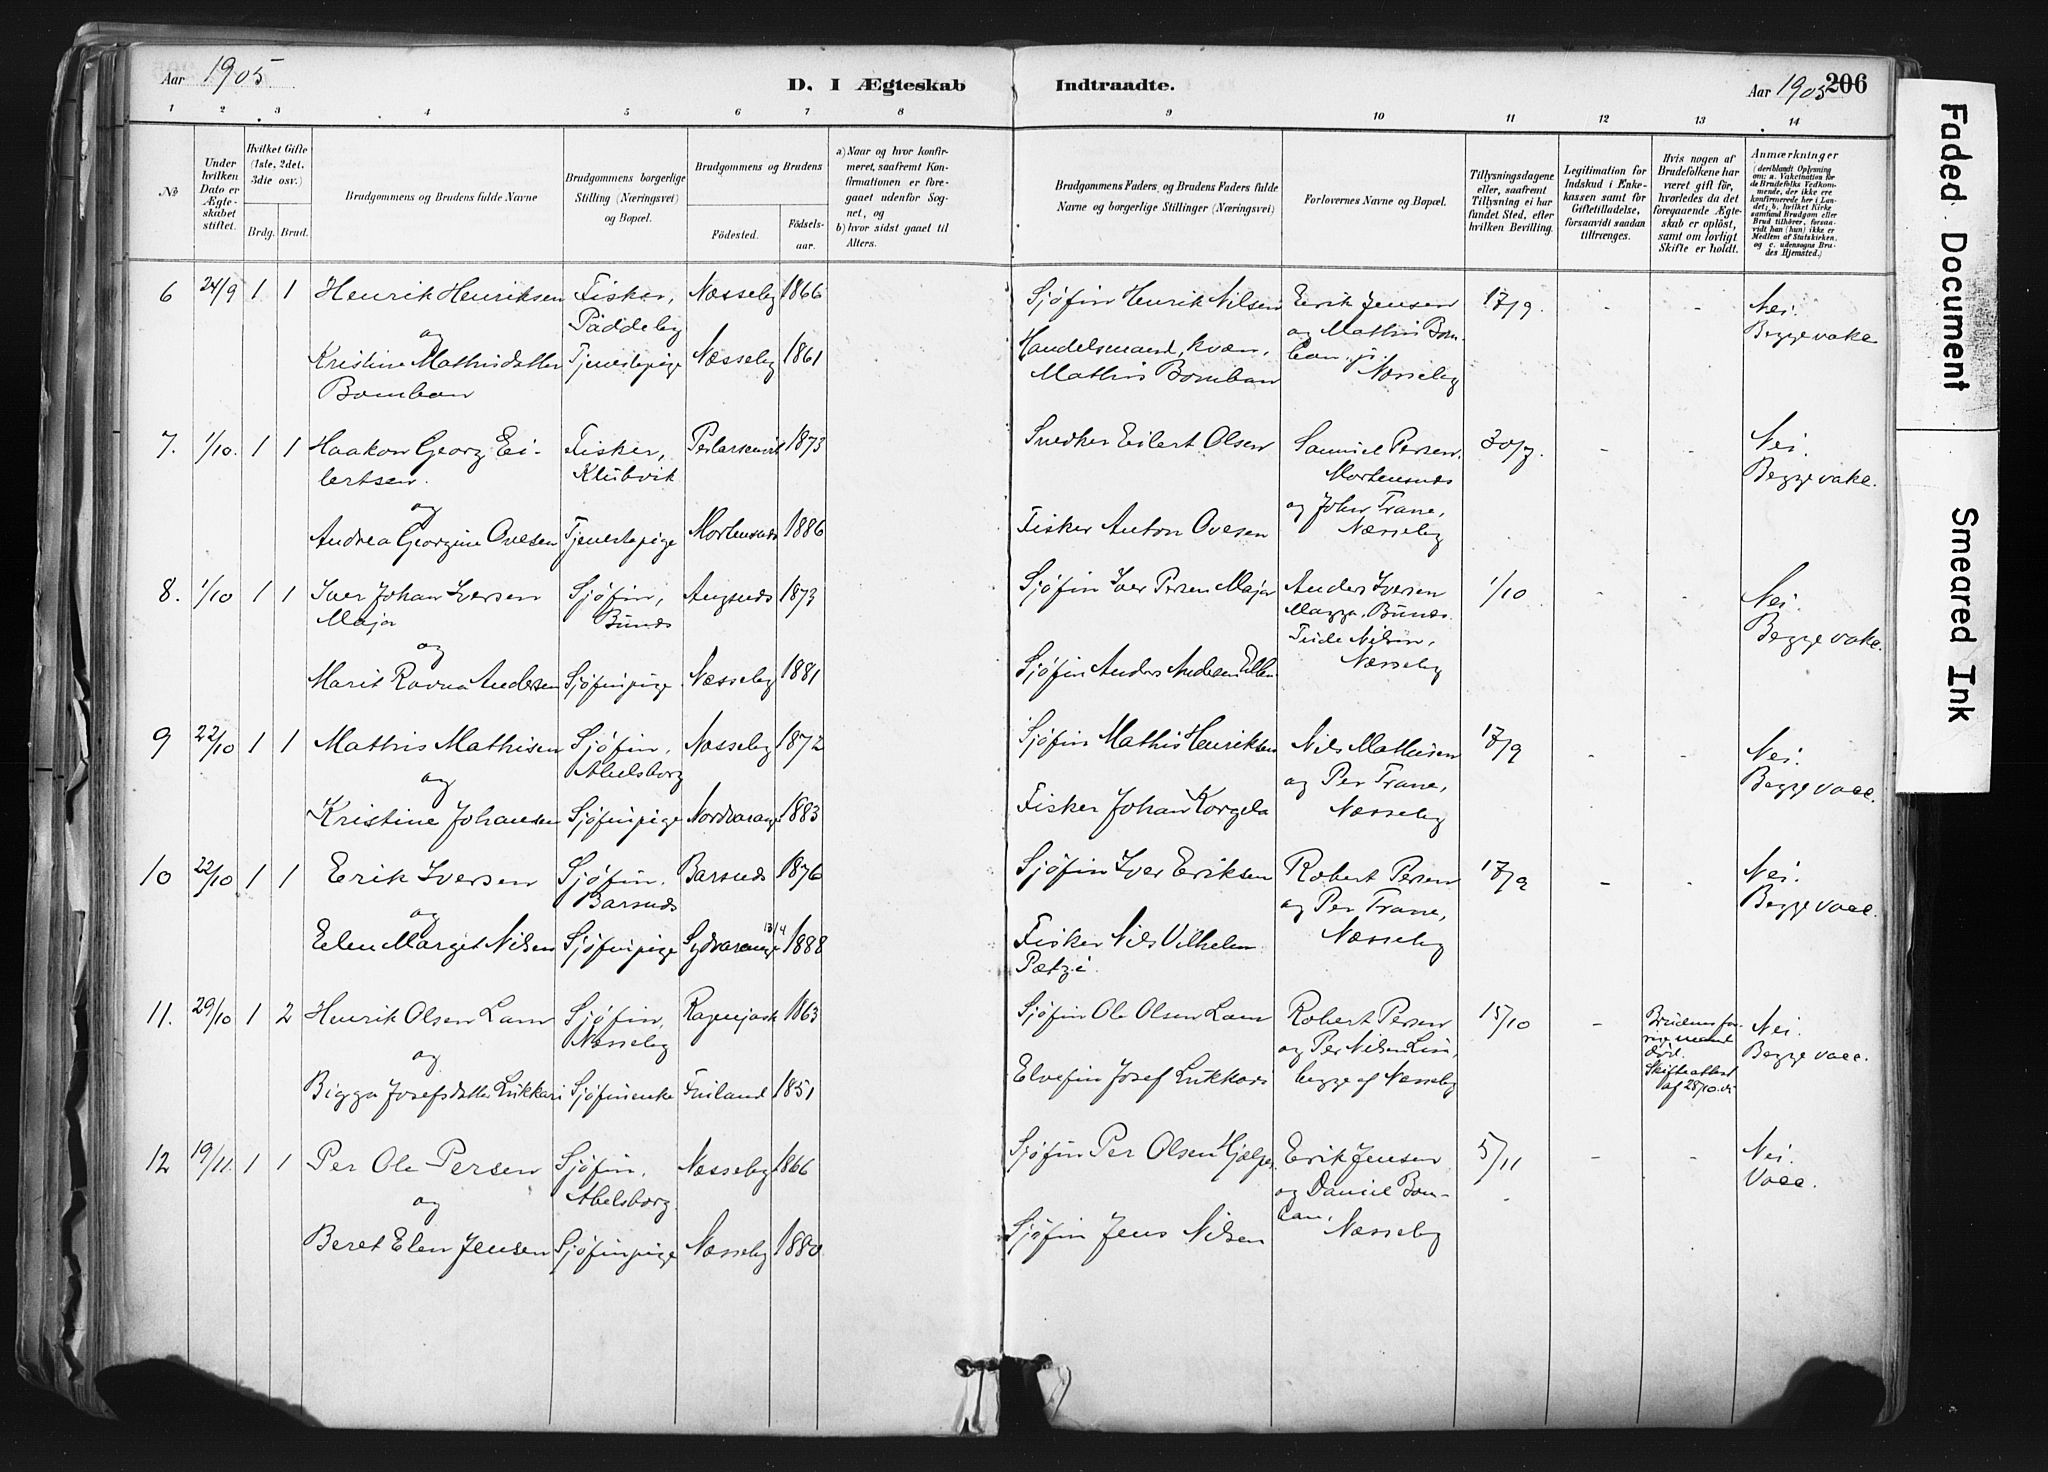 Aar 1905
D. I Ægteskab
Indtraadte.
Aar 1905
206
1 2 3 4 5 6 7 8 9 10 11 12 13 14
No
Under hvilken Dato er Ægteskabet stiftet.
Hvilket Gifte (1ste, 2det, 3die osv.)
Brdg. Brud.
Brudgommens og Brudens fulde Navne
Brudgommens borgerlige Stilling (Næringsvei) og Bopæl.
Brudgommens og Brudens
Fødested.
Fødselsaar.
a) Naar og hvor konfirmeret, saafremt Konfirmationen er foregaaet udenfor Sognet, og
b) hvor sidst gaaet til Alters.
Brudgommens Faders og Brudens Faders fulde Navne og borgerlige Stillinger (Næringsvei)
Forlovernes Navne og Bopæl.
Tillysningsdagene eller, saafremt Tillysning ei har fundet Sted, efter hvilken Bevilling.
Legitimation for Indskud i Enkekassen samt for Giftetilladelse, forsaavidt saadan tiltrænges.
Hvis nogen af Brudefolkene har været gift før, hvorledes da det foregaaende Ægteskab er opløst, samt om lovligt Skifte er holdt.
Anmærkninger
(deriblandt Oplysning om: a. Vakcination for de Brudefolks Vedkommende, der ikke ere konfirmerede her i Landet; b. hvilket Kirkesamfund Brudgom eller Brud tilhører, forsaavidt han (hun) ikke er Medlem af Statskirken, og c. udensogns Brudes Hjemsted.)
6 24/9 1 1 Henrik Henriksen Fisker, Næsseby 1866 Sjøfin Henrik Nilsen Erik Jensen 17/9 - - Nei.
og Paddeby Handelsmand, kvæn, og Mathis Bom- Begge vake
Kristine Mathisdatter Tjenestepige Næsseby 1861 Mathis Bomban ban, Næsseby
Bomban
7. 1/10. 1 1 Haakon Georg Ei- Fisker, 1873 Snedker Eilert Olsen Samuel Persen, 30/7. - - Nei.
lertsen. Klubvik Mortensnæs Begge vake.
og og John Trane,
Andrea Georgine Ovesen Tjenestepige Mortensnæs 1886 Fisker Anton Ovesen Næsseby
8. 1/10 1 1 Iver Johan Iversen Sjøfin, Angsnæs 1873 Sjøfin Iver Persen Major Anders Iversen 1/10 - - Nei.
Major Bunæs Magga, Bunæs. Begge vake.
og Nilsen,
Marit Ravna Andersen Sjøfinpige Næsseby 1881 Sjøfin Anders Andersen Næsseby
9 22/10 1 1 Mathis Mathisen Sjøfin, Næsseby 1872 Sjøfin Mathis Henriksen Nils Mathisen 17/9 - - Nei.
og Abelsborg og Per Trane, Begge vacc.
Kristine Johansen Sjøfinpige Nordvarang 1883 Fisker Johan Korgela Næsseby
10 22/10 1 1 Erik Iversen Sjøfin, Barsnæs 1876 Sjøfin Iver Eriksen Robert Persen 17/9 - - Nei.
og Barsnæs og Per Trane, Begge vacc.
Elen Margit Nilsen Sjøfinpige Sydvarange 13/4 1888 Fisker Nils Vilhelm Næsseby
11. 29/10 1 2 Henrik Olsen Lam Sjøfin, 1863 Sjøfin Ole Olsen Lam Robert Persen 15/10 - Brudens for- Nei.
og Næsseby og Per Nilsen rige mand Begge vacc.
død.
Bigga Josefsdatter Lukkari Sjøfinenke Finland 1851 Elvefin Josef Lukkari begge af Næsseby Skifteattest
af 28/10.05
12 19/11. 1 1 Per Ole Persen Sjøfin, Næsseby 1866 Sjøfin Per Olsen Erik Jensen 5/11 - - Nei.
og Abelsborg. og Daniel Bom- Vacc.
ban,
Beret Elen Jensen Sjøfinpige Næsseby 1880 Sjøfin Jens Nilsen Næsseby
Faded Document
Smeared Ink